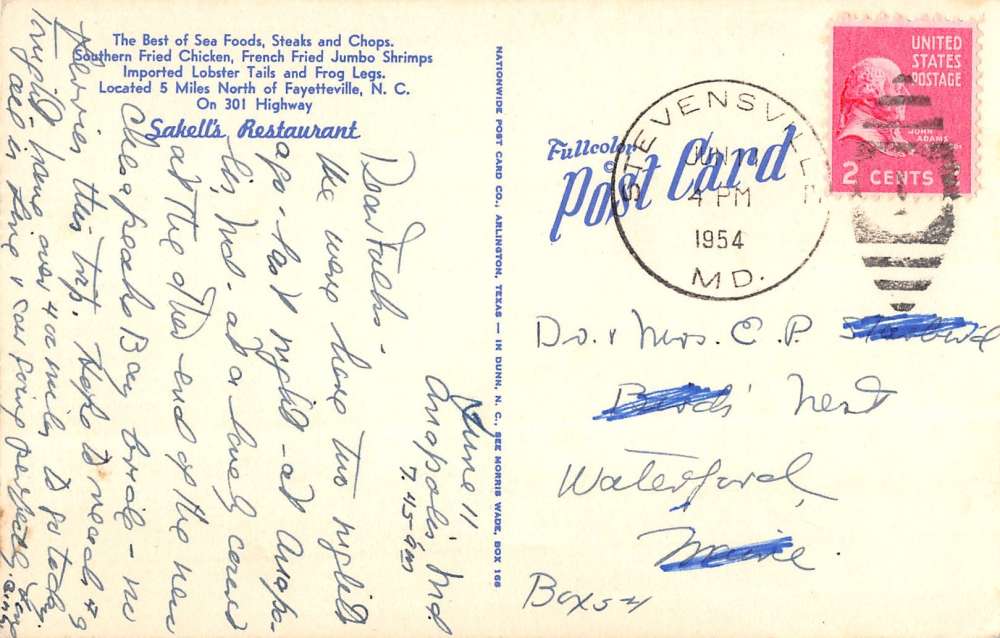 The Best of Sea Foods, Steaks and Chops.
Southern Fried Chicken, French Fried Jumbo Shrimps
Imported Lobster Tails and Frog Legs.
Located 5 Miles North of Fayetteville, N. C.
On 301 Highway
Sakell's Restaurant
June 11
Anapolis Md
7.45 am
Dear Folks -
We were here two nights
ago - last night - at
at a lovely
at the other end of the new
Chesapeake Bay bridge - no
this trip. Hope to reach
tonight - have over 400 miles to go today.
in line & car going perfectly.
NATIONWIDE POST CARD CO., ARLINGTON, TEXAS — IN DUNN, N. C., SEE MORRIS WADE, BOX 166
Fullcolor
Post Card
STEVENSVILLE
JUN 11
4 PM
1954
MD.
UNITED
STATES
POSTAGE
JOHN
ADAMS
2 CENTS 2
Dr. & Mrs. E. P.
Birds' Nest
Waterford,
Maine.
Box 54